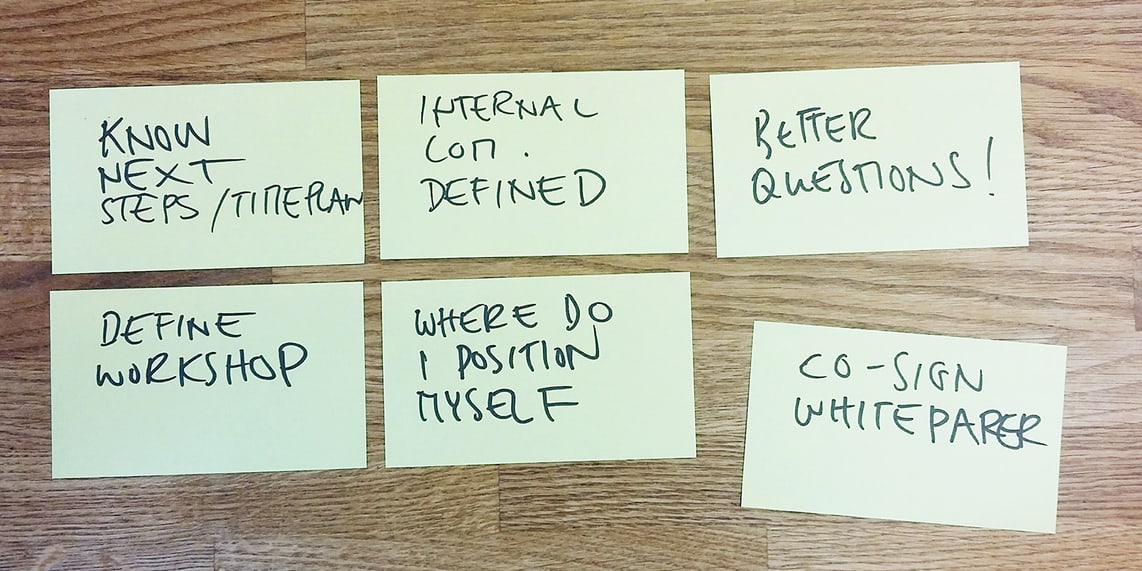 KNOW
NEXT
STEPS / TIMEPLAN
INTERNAL
COM.
DEFINED
BETTER
QUESTIONS!
DEFINE
WORKSHOP
WHERE DO
I POSITION
MYSELF
CO-SIGN
WHITEPAPER